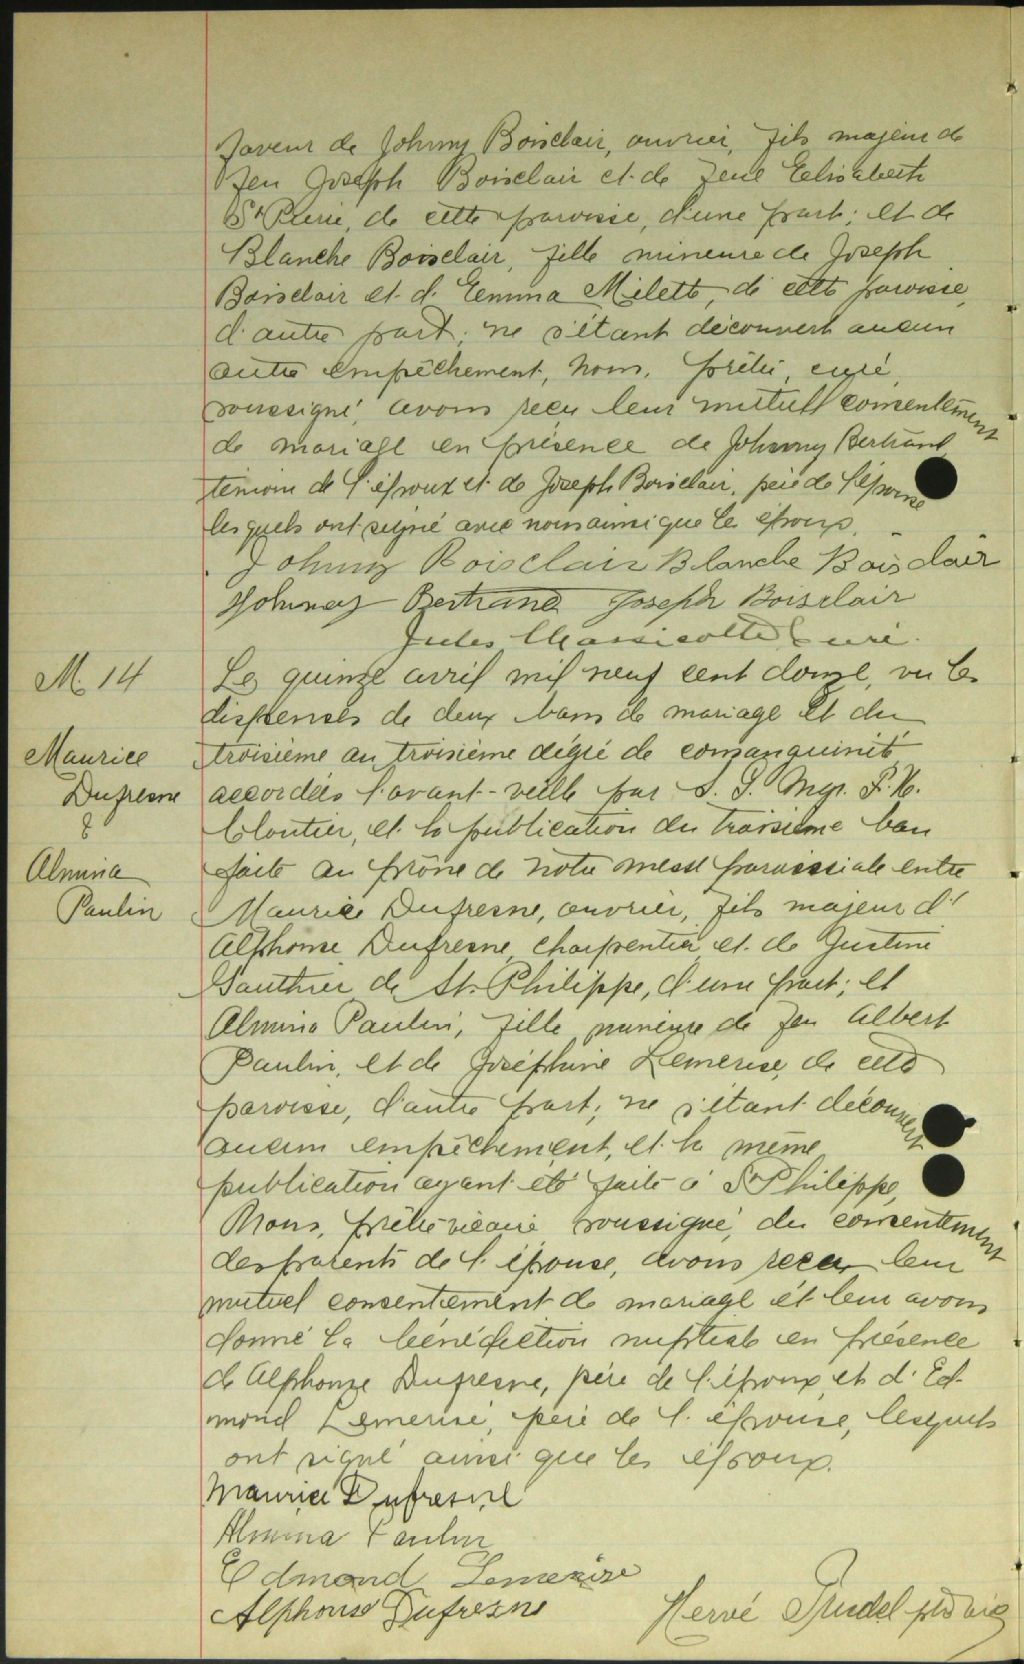 faveur de Johnny Boisclair, ouvrier, fils majeur de
feu Joseph Boisclair et de feue Eelisabeth
St Pierre, de cette paroisse, d'une part; et de
Blanche Boisclair, fille mineure de Joseph
Boisclair et d'Eemma Milette, de cette paroisse,
d'autre part; ne s'étant découvert aucun
autre empêchement, nous, prêtre, curé,
soussigné, avons reçu leur mutuel consentement
de mariage en présence de Johnny Bertrand,
témoin de l'époux et de Joseph Boisclair, père de l'épouse
lesquels ont signé avec nous ainsi que les époux.
Johnny Boisclair Blanche Boisclair
Johnney Bertrand Joseph Boisclair
Jules Massicotte Curé.
M. 14
Maurice
Dufresne
&
Almina
Paulin
Le quinze avril mil neuf cent douze, vu les
dispenses de deux bans de mariage et du
troisième au troisième dégré de consanguinité
accordées l'avant-veille par S. G. Mgr. F. X.
Cloutier, et la publication du troisième ban
faite au prône de notre messe paroissiale entre
Maurice Dufresne, ouvrier, fils majeur d'
Alphonse Dufresne, charpentier et de Justine
Gauthier de St-Philippe, d'une part; et
Almina Paulin, fille mineure de feu Albert
Paulin, et de Joséphine Lemerise, de cette
paroisse, d'autre part; ne s'étant découvert
aucun empêchement, et la même
publication ayant été faite à St Philippe,
Nous, prêtre vicaire soussigné, du consentement
des parents de l'épouse, avons reçu leur
mutuel consentement de mariage et leur avons
donné la bénédiction nuptiale en présence
de Alphonse Dufresne, père de l'époux et d'Ed-
mond Lemerise, père de l'épouse, lesquels
ont signé ainsi que les époux.
Maurice Dufresne
Almina Paulin
Edmond Lemerise
Alphonse Dufresne
Hervé Trudel ptre vic